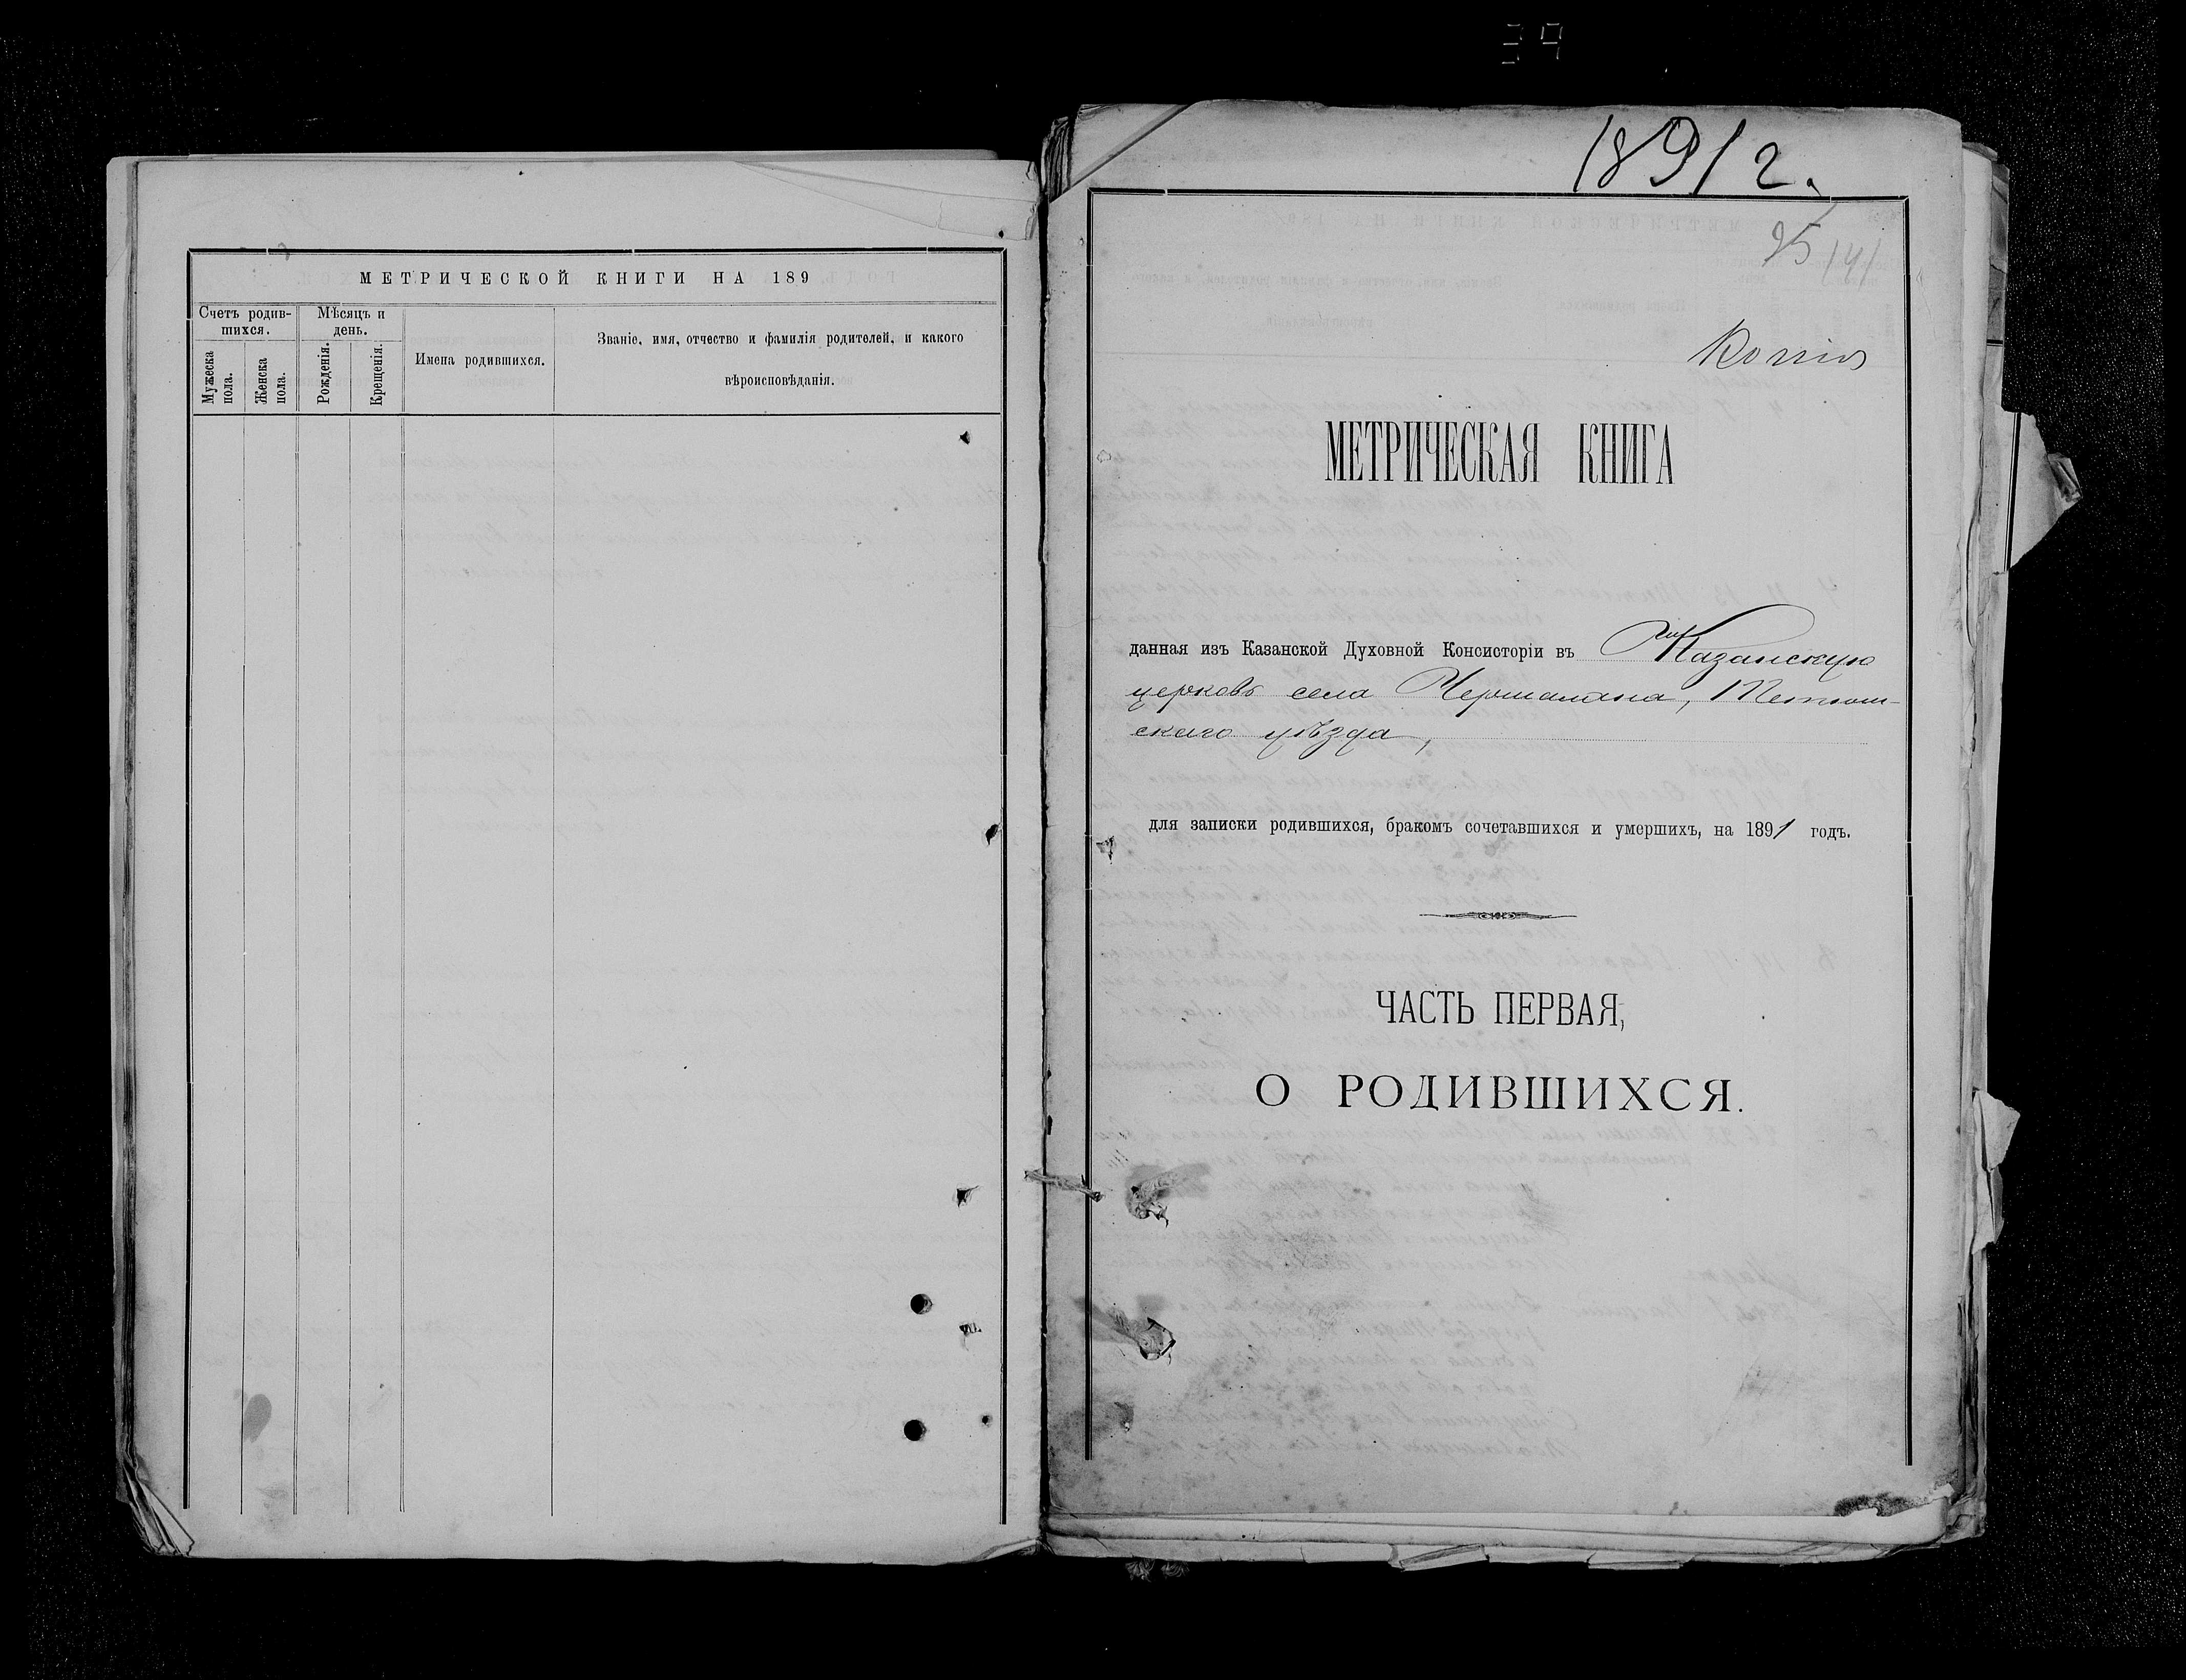 МЕТРИЧЕСКОЙ КНИГИ НА 189
Счетъ родив-
шихся.
Мужеска
пола.
Женска
пола.
Мѣсяцъ и
день.
Рожденія.
Крещенія.
Имена родившихся.
Званіе, имя, отчество и фамилія родителей, и какого
вѣроисповѣданія.
1891 г.
Копія
МЕТРИЧЕСКАЯ КНИГА
данная изъ Казанской Духовной Консисторіи въ Казанскую
церковь села Чершалана, Тетюш-
скаго уѣзда,
для записки родившихся, бракомъ сочетавшихся и умершихъ, на 1891 годъ.
ЧАСТЬ ПЕРВАЯ,
О РОДИВШИХСЯ.